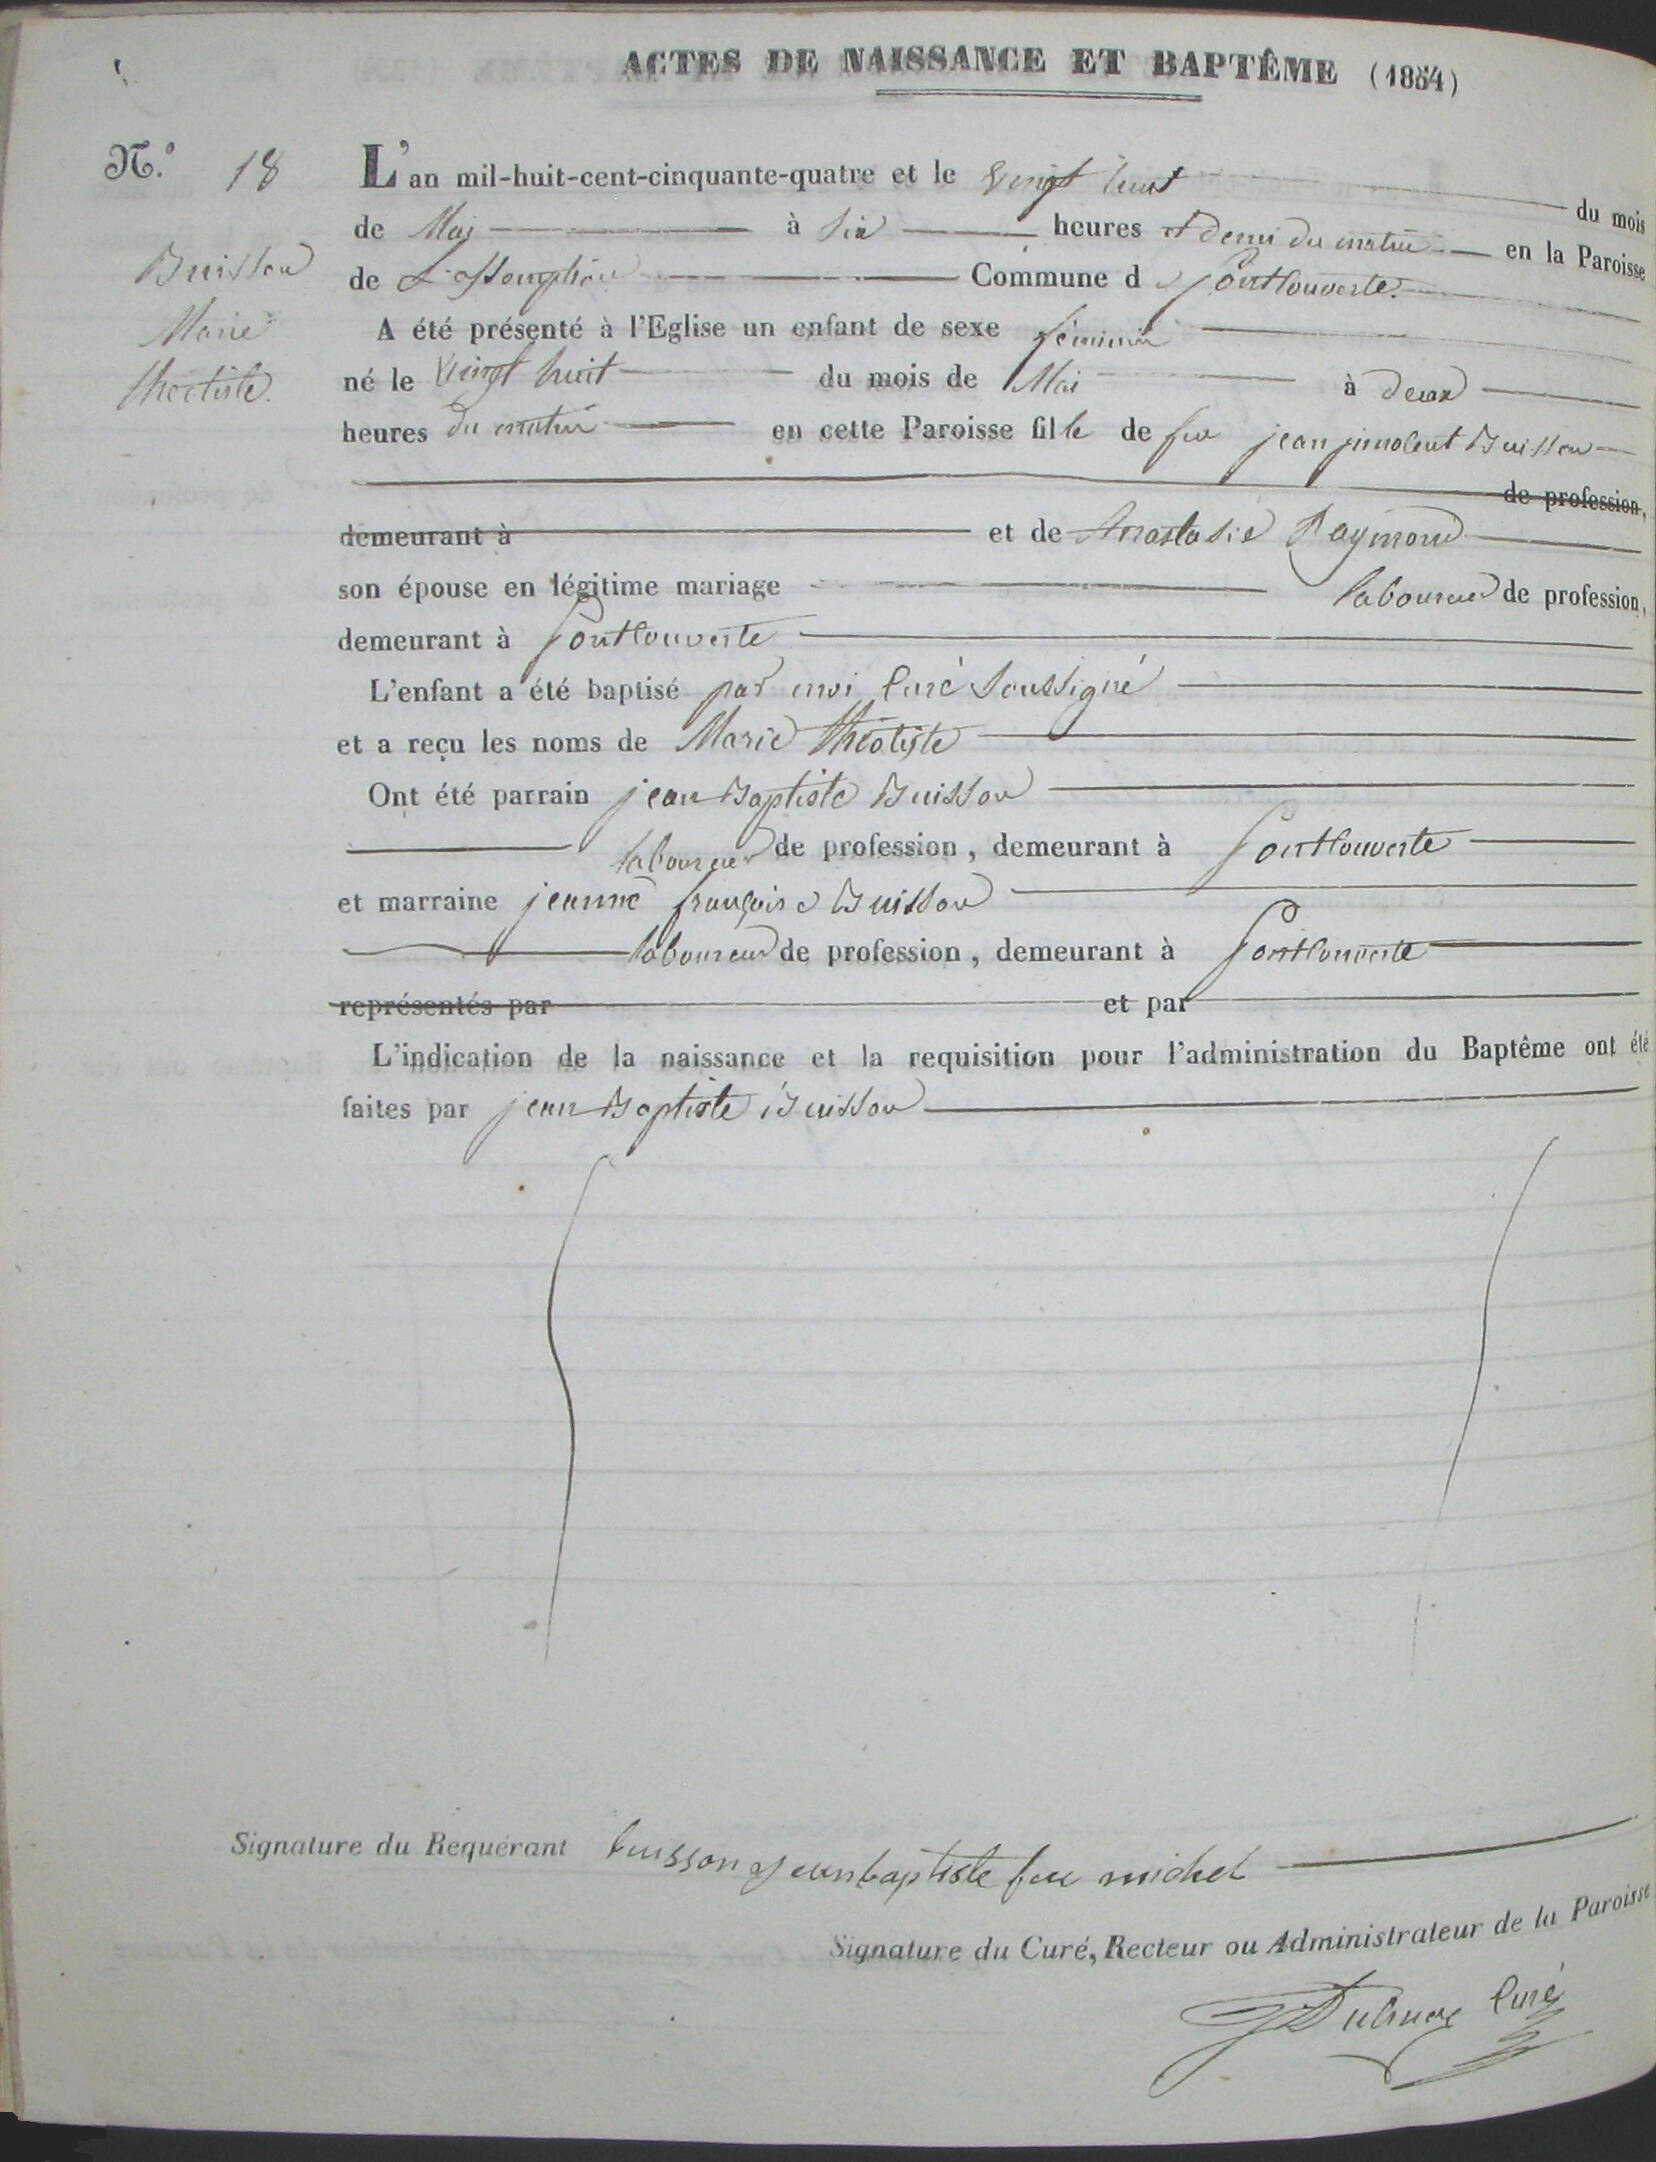 ACTES DE NAISSANCE ET BAPTÊME (1854)
N.º 18
L'an mil-huit-cent-cinquante-quatre et le vingt huit du mois
de Mai à six heures et demi du matin en la Paroisse
Buisson
de L'assomption Commune d
Marie
A été présenté à l'Eglise un enfant de sexe féminin
théotiste.
né le vingt huit du mois de Mai à deux
heures du matin en cette Paroisse fille de feu jean Buisson
de profession,
demeurant à et de Anastasie Raymond
son épouse en légitime mariage laboureur de profession,
demeurant à
L'enfant a été baptisé par moi Curé soussigné
et a reçu les noms de Marie théotiste
Ont été parrain jean Baptiste Buisson
laboureur de profession, demeurant à
et marraine jeanne françoise Buisson
laboureur de profession, demeurant à
représentés par et par
L'indication de la naissance et la requisition pour l'administration du Baptême ont été
faites par jean Baptiste Buisson
Signature du Requérant buisson jeanbaptiste feu michel
Signature du Curé, Recteur ou Administrateur de la Paroisse
Curé